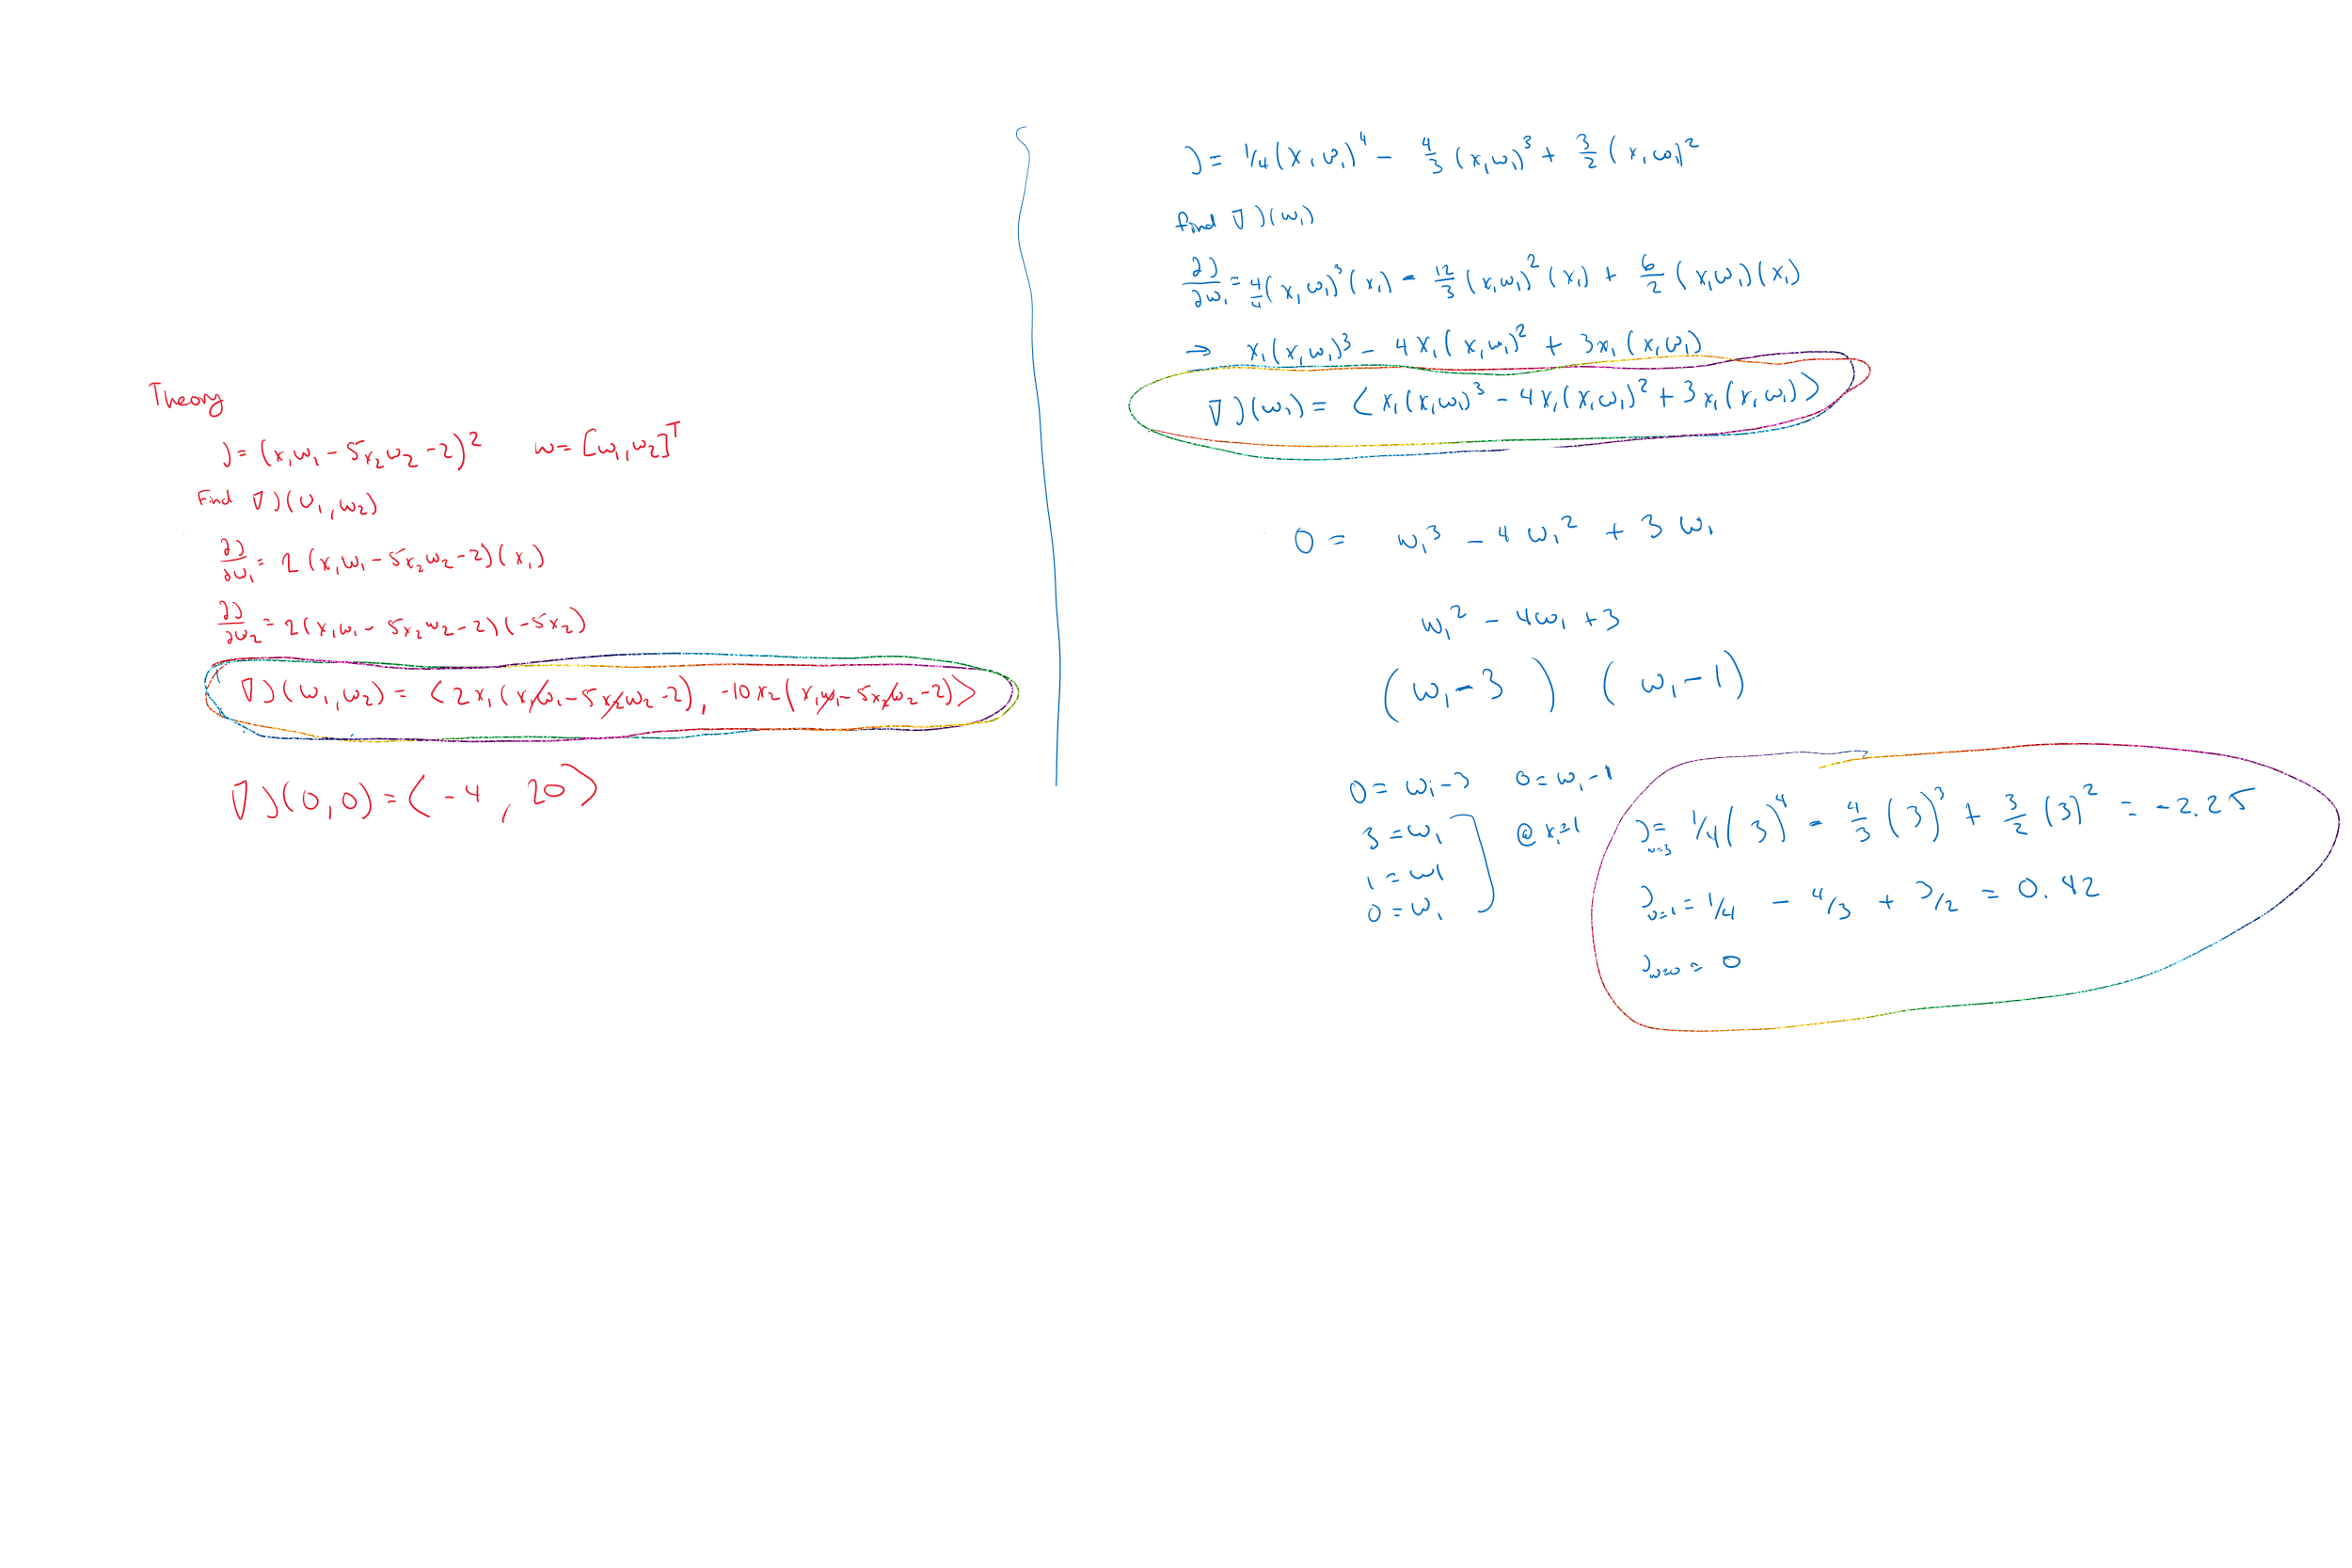 Theory
J = (x₁w₁ - 5x₂w₂ - 2)² w = [w₁, w₂]ᵀ
Find ∇J(w₁, w₂)
∂J/∂w₁ = 2(x₁w₁ - 5x₂w₂ - 2)(x₁)
∂J/∂w₂ = 2(x₁w₁ - 5x₂w₂ - 2)(-5x₂)
∇J(w₁, w₂) = <2x₁(x₁w₁ - 5x₂w₂ - 2), -10x₂(x₁w₁ - 5x₂w₂ - 2)>
∇J(0,0) = <-4, 20>
J = 1/4(x₁w₁)⁴ - 4/3(x₁w₁)³ + 3/2(x₁w₁)²
find ∇J(w₁)
∂J/∂w₁ = 4/4(x₁w₁)³(x₁) - 12/3(x₁w₁)²(x₁) + 6/2(x₁w₁)(x₁)
⇒ x₁(x₁w₁)³ - 4x₁(x₁w₁)² + 3x₁(x₁w₁)
∇J(w₁) = <x₁(x₁w₁)³ - 4x₁(x₁w₁)² + 3x₁(x₁w₁)>
0 = w₁³ - 4w₁² + 3w₁
w₁² - 4w₁ + 3
(w₁ - 3) (w₁ - 1)
0 = w₁ - 3 0 = w₁ - 1
3 = w₁ @ x₁=1
1 = w1
0 = w₁
J w=3 = 1/4(3)⁴ - 4/3(3)³ + 3/2(3)² = -2.25
J w=1 = 1/4 - 4/3 + 3/2 = 0.42
J w=0 = 0